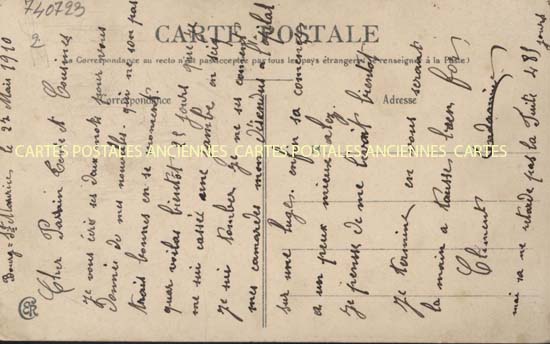 740723
2
CARTE POSTALE
(La Correspondance au recto n'est pas acceptée par tous les pays étrangers. Se renseigner à la Poste)
Correspondance
Adresse
CARTES POSTALES ANCIENNES
CARTES POSTALES ANCIENNES
CARTES POSTALES ANCIENNES
Bourg-St Maurice, le 24 Mais 1910
Cher Parrain et Cousines
je vous écris ses deux mots pour vous
donnés de mes nouvelles. qui ne son pas
trais bonnes en se moment
quar voilas bientôt jours que je
me sui cassée une jambe
je sui tomber je ne ses comment
mes camarades mon désendus
sur une luge. enfin sa comence
a un peux mieux alez.
je pense de me levait bientôt
je termine en vous serant
la main a tousse bien for
Clément
mai sa ne retarde pas la fuite 485
jours